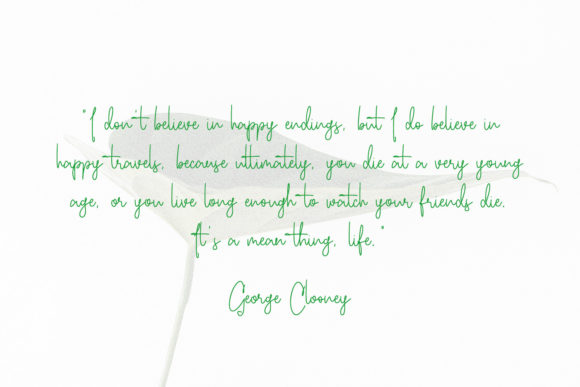 "I don't believe in happy endings, but I do believe in
happy travels, because ultimately, you die at a very young
age, or you live long enough to watch your friends die.
It's a mean thing, life."
George Clooney